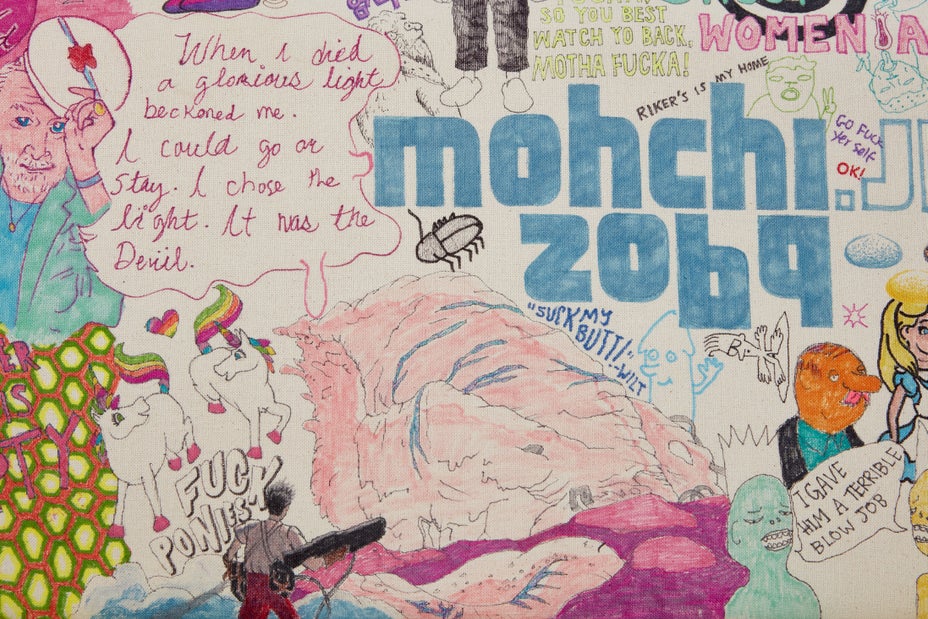 SO YOU BEST
WATCH YO BACK,
MOTHA FUCKA!
WOMEN
RIKER'S IS MY HOME
When I died
a glorious light
beckoned me.
I could go or
stay. I chose the
light. It was the
Devil.
mohchi.
zobq
GO FUCK
yer self
OK!
"SUCK MY
BUTT!"
--WILT
FUCK
PONIES!
I GAVE
HIM A TERRIBLE
BLOW JOB